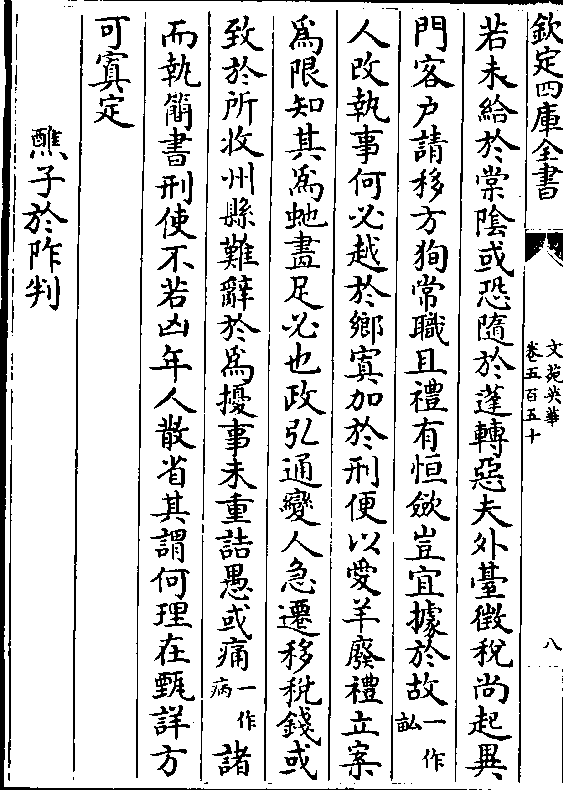 欽定四庫全書
文苑英華
卷五百五十
八
若未給於棠陰或恐隨於蓬轉惡夫外臺徵稅尚起異
門客户請移方狥常職且禮有恒斂豈宜據於故一作畝
人改執事何必越於鄉寘加於刑便以愛羊廢禮立案
爲限知其爲虵畫足必也政弘通變人急遷移稅錢或
致於所收州縣難辭於爲擾事未重詰愚或痛一作病諸
而執簡書刑使不若凶年人散省其謂何理在甄詳方
可寘定
醮子於阼判